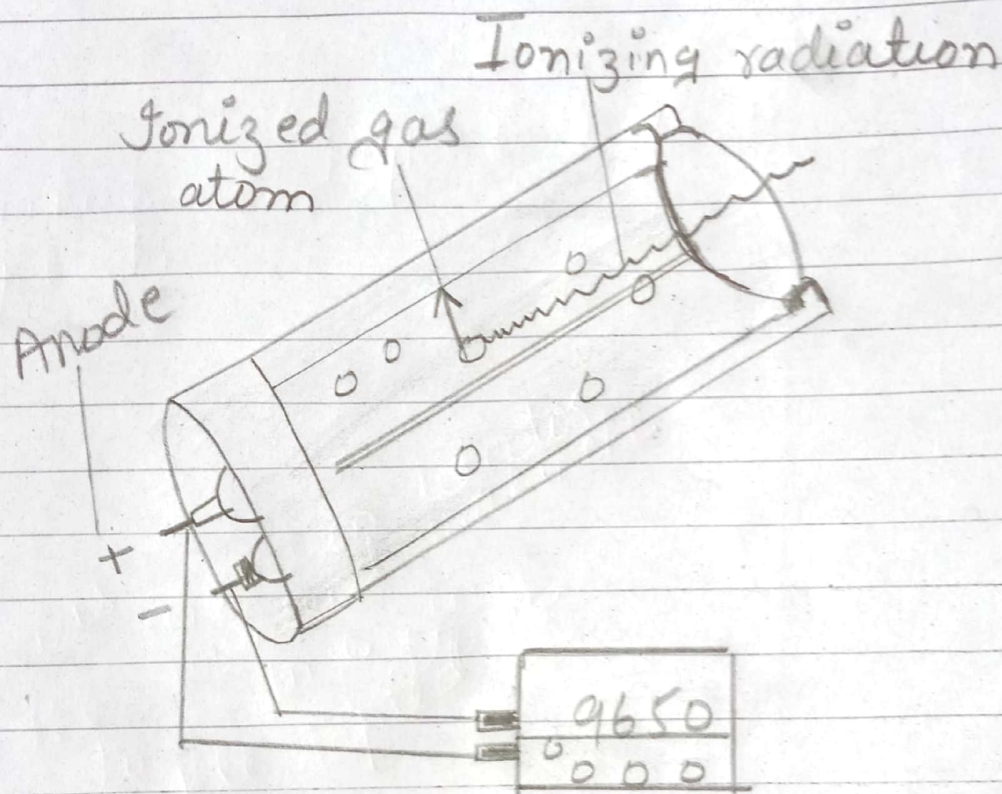 Ionizing radiation
Ionized gas
atom
Anode
+
-
9650